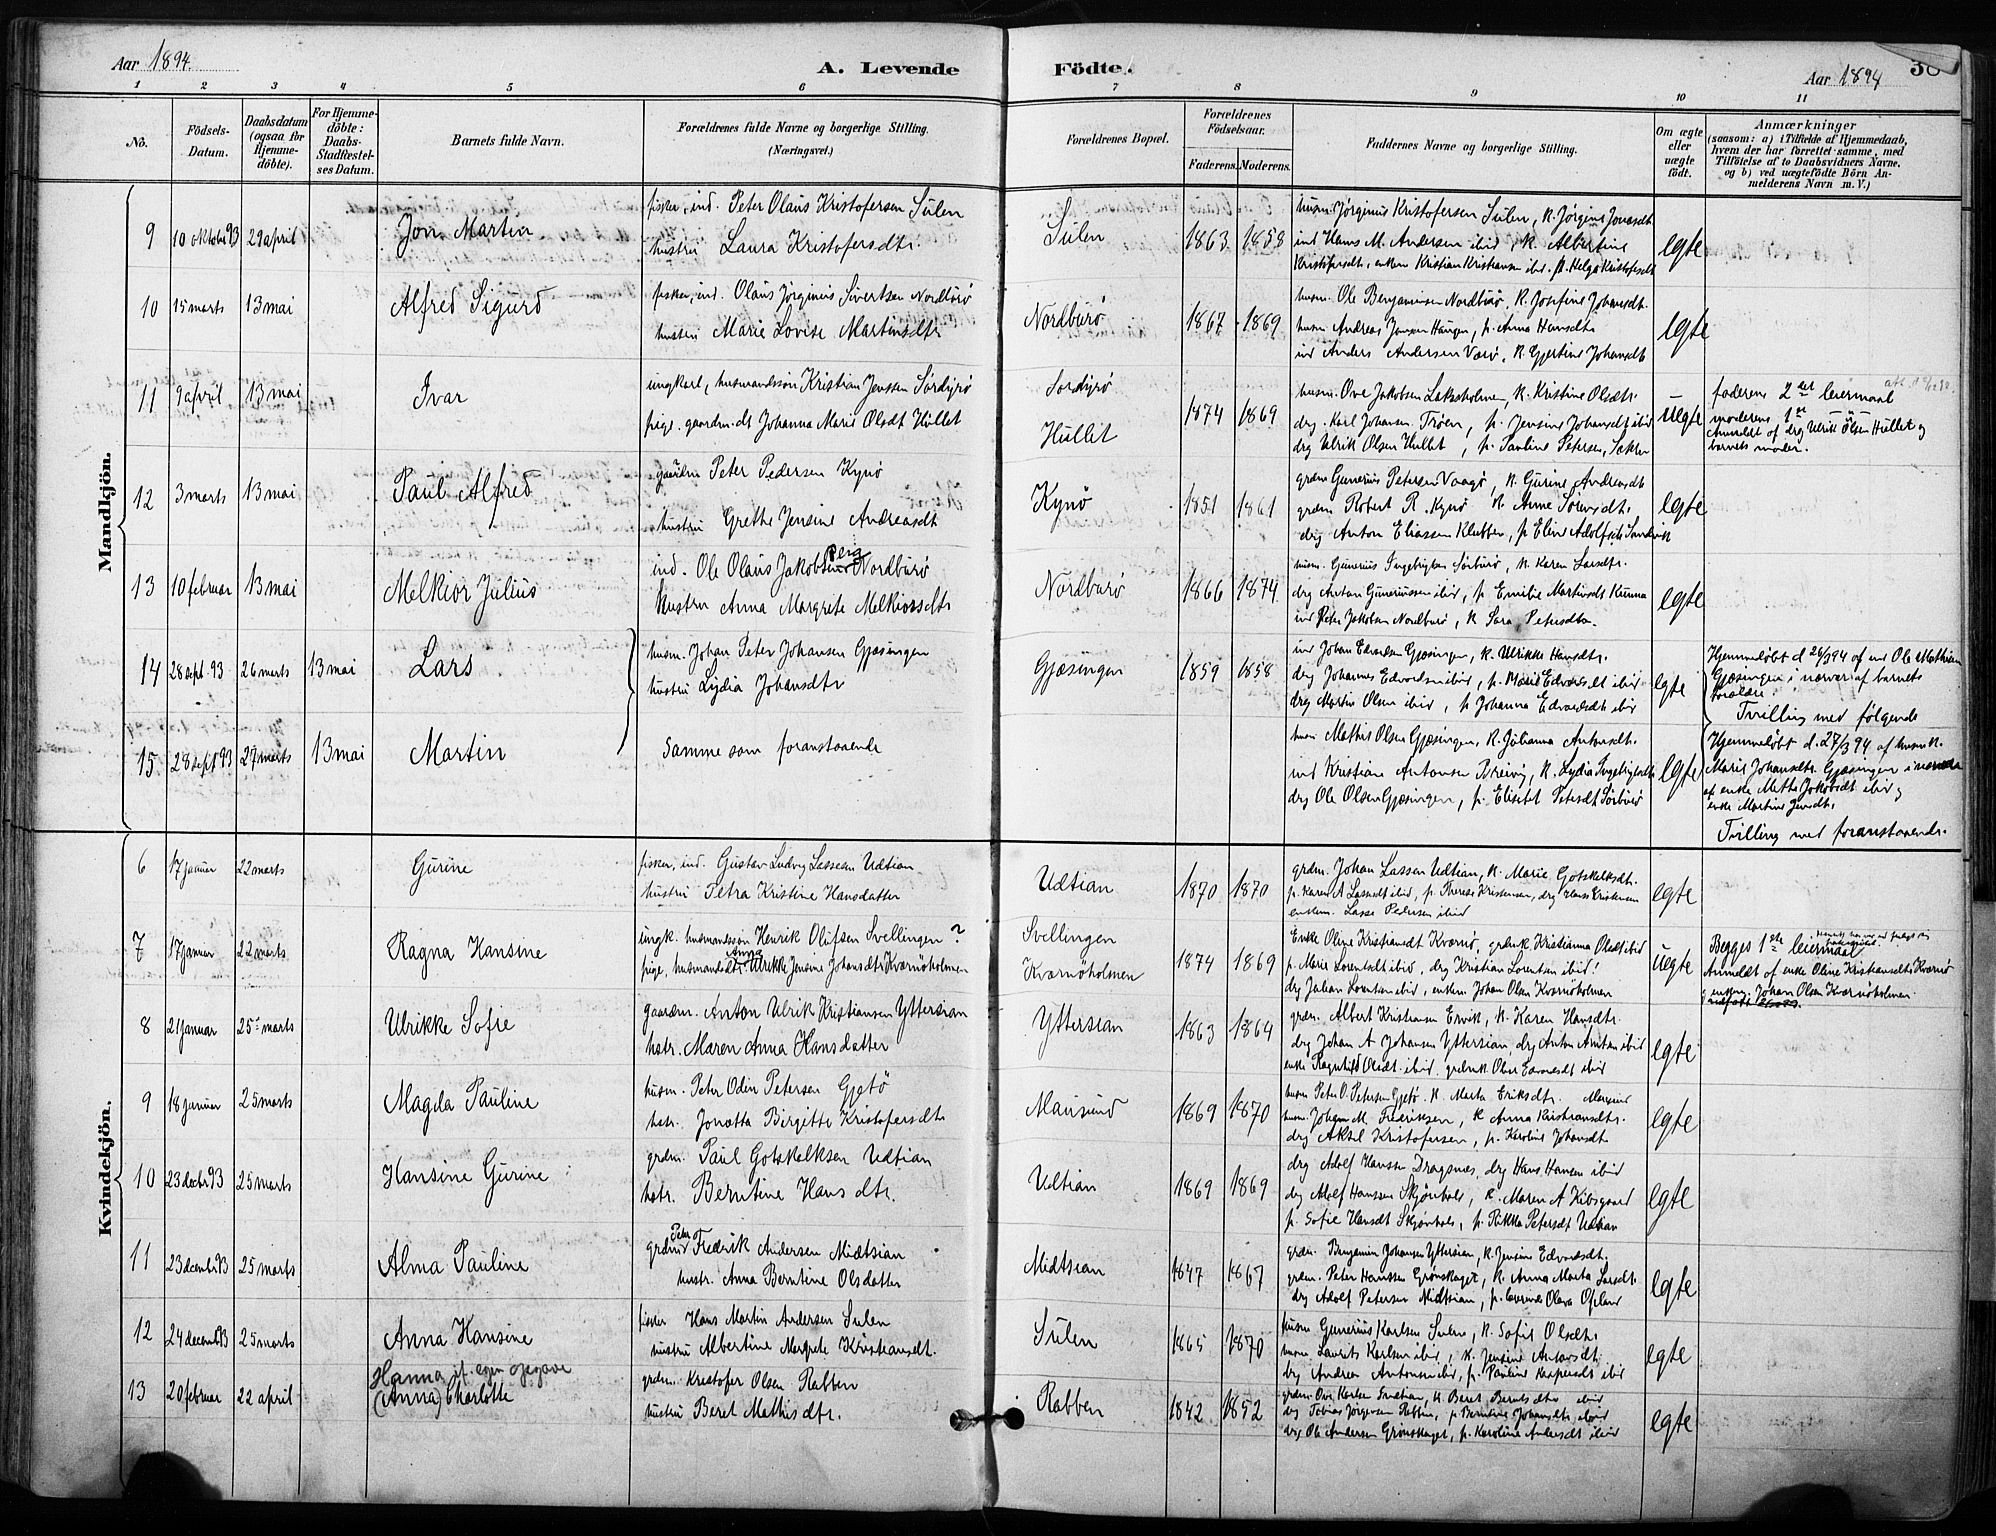 Aar 1894. A. Levende Födte. Aar 1894
1 2 3 4 5 6 7 8 9 10 11
No.
Födsels-Datum.
Daabsdatum (ogsaa for Hjemme-döbte).
For Hjemme-döbte: Daabs-Stadfæstel-ses Datum.
Barnets fulde Navn.
Forældrenes fulde Navne og borgerlige Stilling. (Næringsvei.)
Forældrenes Bopæl.
Forældrenes Födselsaar.
Faderens. Moderens.
Faddernes Navne og borgerlige Stilling.
Om ægte eller uægte födt.
Anmærkninger
(saasom: a) i Tilfælde af Hjemmedaab,
hvem der har forrettet samme, med
Tilföielse af to Daabsvidners Navne,
og b) ved uægtefödte Börn An-
melderens Navn m. V.)
Mandkjön.
9 10 oktober 93 29 april Jon Martin
fisker, ind. Peter Olaus Kristofersen Sulen
hustru Laura Kristofersdtr.
Sulen 1863 1858
husm. Jørginus Kristofersen Sulen, K. Jørgine Jonasdt.
ind Hans M. Andersen ibid, K. Albertine
Kristofersdt, enkem Kristian Kristiansen ibid. p. Helga Kristofersdt
egte
10 15 marts 13 mai Alfred Sigurd
fisker, ind. Olaus Jørginus Sivertsen Nordburø
hustru Marie Lovise Martinsdtr
Nordburø 1867 1869
husm. Ole Benjaminsen Nordburø, K. Josefine Johansdt.
husm Andreas Jensen Haugen, p. Anna Hansdt.
ind Anders Andersen Værø, K. Gjertine Johansdt
egte
11 9 april 13 mai Ivar
ungkarl, husmandssøn Kristian Jenssen Sørdyrø
pige gaardm.dt Johanna Marie Olsdt Hullet
Sørdyrø
Hullet
1874 1869
husm. Ove Jakobsen Laksholmen, K. Kristine Olsdt.
drg. Karl Johansen Trøen, p. Jensine Johansdt ibid
drg Ulrik Olsen Hullet, p. Pauline Petersen,
uegte
faderens 2det leiermaal
moderens 1ste
Anmeldt af drg Ulrik Olsen Hullet og
barnets moder.
12 3 marts 13 mai Paul Alfred
gaardm Peter Pedersen Kynø
hustru Grethe Jensine Andreasdt
Kynø 1851 1861
grdm Gunerius Petersen Vaagø, K. Gurine Andreasdt
grdm Robert R. Kynø K. Anne Sørensdt.
drg Anton Eliassen Klubben, p Eline Adolfsdt Sandvik
egte
13 10 februar 13 mai Melkior Julius
Berg
ind. Ole Olaus Jakobsen Nordburø
hustru Anna Margrete Melkiorsdtr
Nordburø 1866 1874
husm. Gunerius Ingebrigtsen Sørburø, K. Karen Larsdt.
drg Anton Guneriussen ibid, p. Emilie Martinsdt Kunna
ind Peter Jakobsen Nordburø, K Sara Petersdtr.
egte
14 28 sept. 93 26 marts 13 mai Lars
husm. Johan Peter Johansen Gjæsingen
hustru Lydia Johansdtr
Gjæsingen 1859 1858
ind Johan Edvardsen Gjæsingen, K. Ulrikke Hansdtr.
drg Johannes Edvardsen ibid, p. Marie Edvardsdt ibid
drg Martin Olsen ibid, p Johanna Edvardsdt ibid
egte
Hjemmedøbt d 26/3 94 af ind Ole Mathisen
Gjæsingen i nærvær af barnets
forældre.
Tvilling med følgende
15 28 sept 93 27 marts 13 mai Martin
Samme som foranstaaende
husm Mathis Olsen Gjæsingen, K. Johanna Antonsdt.
ind Kristian Antonsen Breivig, K. Lydia Ingebrigtsdt
drg Ole Olsen Gjæsingen, p. Elisebet Petersdt Sørburø
egte
Hjemmedøbt d. 27/3 94 af husm K.
Marie Johansdtr Gjæsingen i nærvær
af enke Mette Jakobsdt ibid og
enke Martine Jensdt.
Tvilling med foranstaaende.
Kvindekjön.
6 17 januar 22 marts Gurine
fisker, ind. Gustav Ludvig Lassesen Udtian
hustru Petra Kristine Hansdatter
Udtian 1870 1870
grdm. Johan Lassen Udtian, K. Marie Gotskalksdt.
p. Karen A Lassedt ibid, p. Therese Kristensen, drg Hans Kristensen
enkem. Lasse Pedersen ibid
egte
7 17 januar 22 marts Ragna Hansine
ungk. husmandssøn Henrik Olufsen Svellingen ?
Anna
pige, husmandsdt. Ulrikke Jensine Johansdtr Kværnøholmen
Svellingen
Kværnøholmen
1874 1869
Enke Oline Kristiansdt Kværnø, grdmk Kristianna Olsdt ibid
p. Marie Lorentsdt ibid, drg Kristian Lorentsen ibid
drg Julian Lorentsen ibid, enkem. Johan Olsen Kværnøholmen
uegte
Begges 1ste leiermaal
Anmeldt af enke Oline Kristiansdtr Kværnø
og enkem. Johan Olsen Kværnøholmen.
8 21 januar 25 marts Ulrikke Sofie
gaardm. Anton Ulrik Kristiansen Yttersian
hstr. Maren Anna Hansdatter
Yttersian 1863 1864
grdm. Albert Kristiansen Ervik, K. Karen Hansdtr.
drg Johan A Johansen Yttersian, drg Anton Antonsen ibid
enke Ragnhild Olsdt. ibid, grdmk Oline Edvardsdt ibid
egte
9 18 januar 25 marts Magda Pauline
husm. Peter Odin Petersen Gjetø
hstr. Jonetta Birgitte Kristofersdtr
Mausund 1869 1870
husm Peter O. Petersen Gjetø. K. Marta Eriksdtr. Mausund
husm. Johan M. Fredriksen, K Anna Kristiansdtr.
drg Aksel Kristofersen, p. Karoline Johansdt.
egte
10 23 decbr 93 25 marts Hansine Gurine
grdm. Paul Gotskalksen Udtian
hstr. Berntine Hansdtr.
Udtian 1869 1869
drg Adolf Hanssen Dragsnes, drg Hans Hansen ibid
drg Adolf Hanssen Skjønhals, K. Maren A Kibsgaard
p. Sofie Hansdt Skjønhals, p. Rikka Petersdt Udtian
egte
11 23 decembr 93 25 marts Alma Pauline
Peter
grdm Fredrik Andersen Midtsian
hustr. Anna Berntine Olsdatter
Midtsian 1847 1867
grdm. Benjamin Johansen Yttersian, K. Jensine Edvardsdt.
grdm. Peter Hanssen Grønskaget, K. Anna Marta Larsdtr
drg Adolf Petersen Midtsian, p. lærerinde Olava Opland
egte
12 24 decembr 93 25 marts Anna Hansine
fisker Hans Martin Andersen Sulen
hustru Albertine Margrete Kristiansdt.
Sulen 1865 1870
husm Gunerius Karlsen Sulen, K. Sofie Olsdtr.
husm Laurits Karlsen ibid, K. Jensine Antonsdt.
drg Andreas Antonsen ibid, p. Pauline Kaspersdt ibid
egte
13 20 februar 22 april
Hanna if. egen opgave
(Anna) Charlotte
grdm. Kristofer Olsen Rabben
hustru Beret Mathisdtr.
Rabben 1842 1852
grdm Ove Karlsen, K Beret Berntsdtr ibid
drg Tobias Jørgensen Rabben, p. Berntine Johansdt. ibid
drg Ole Andersen Grønskaget, p. Karoline Andersdt ibid
egte